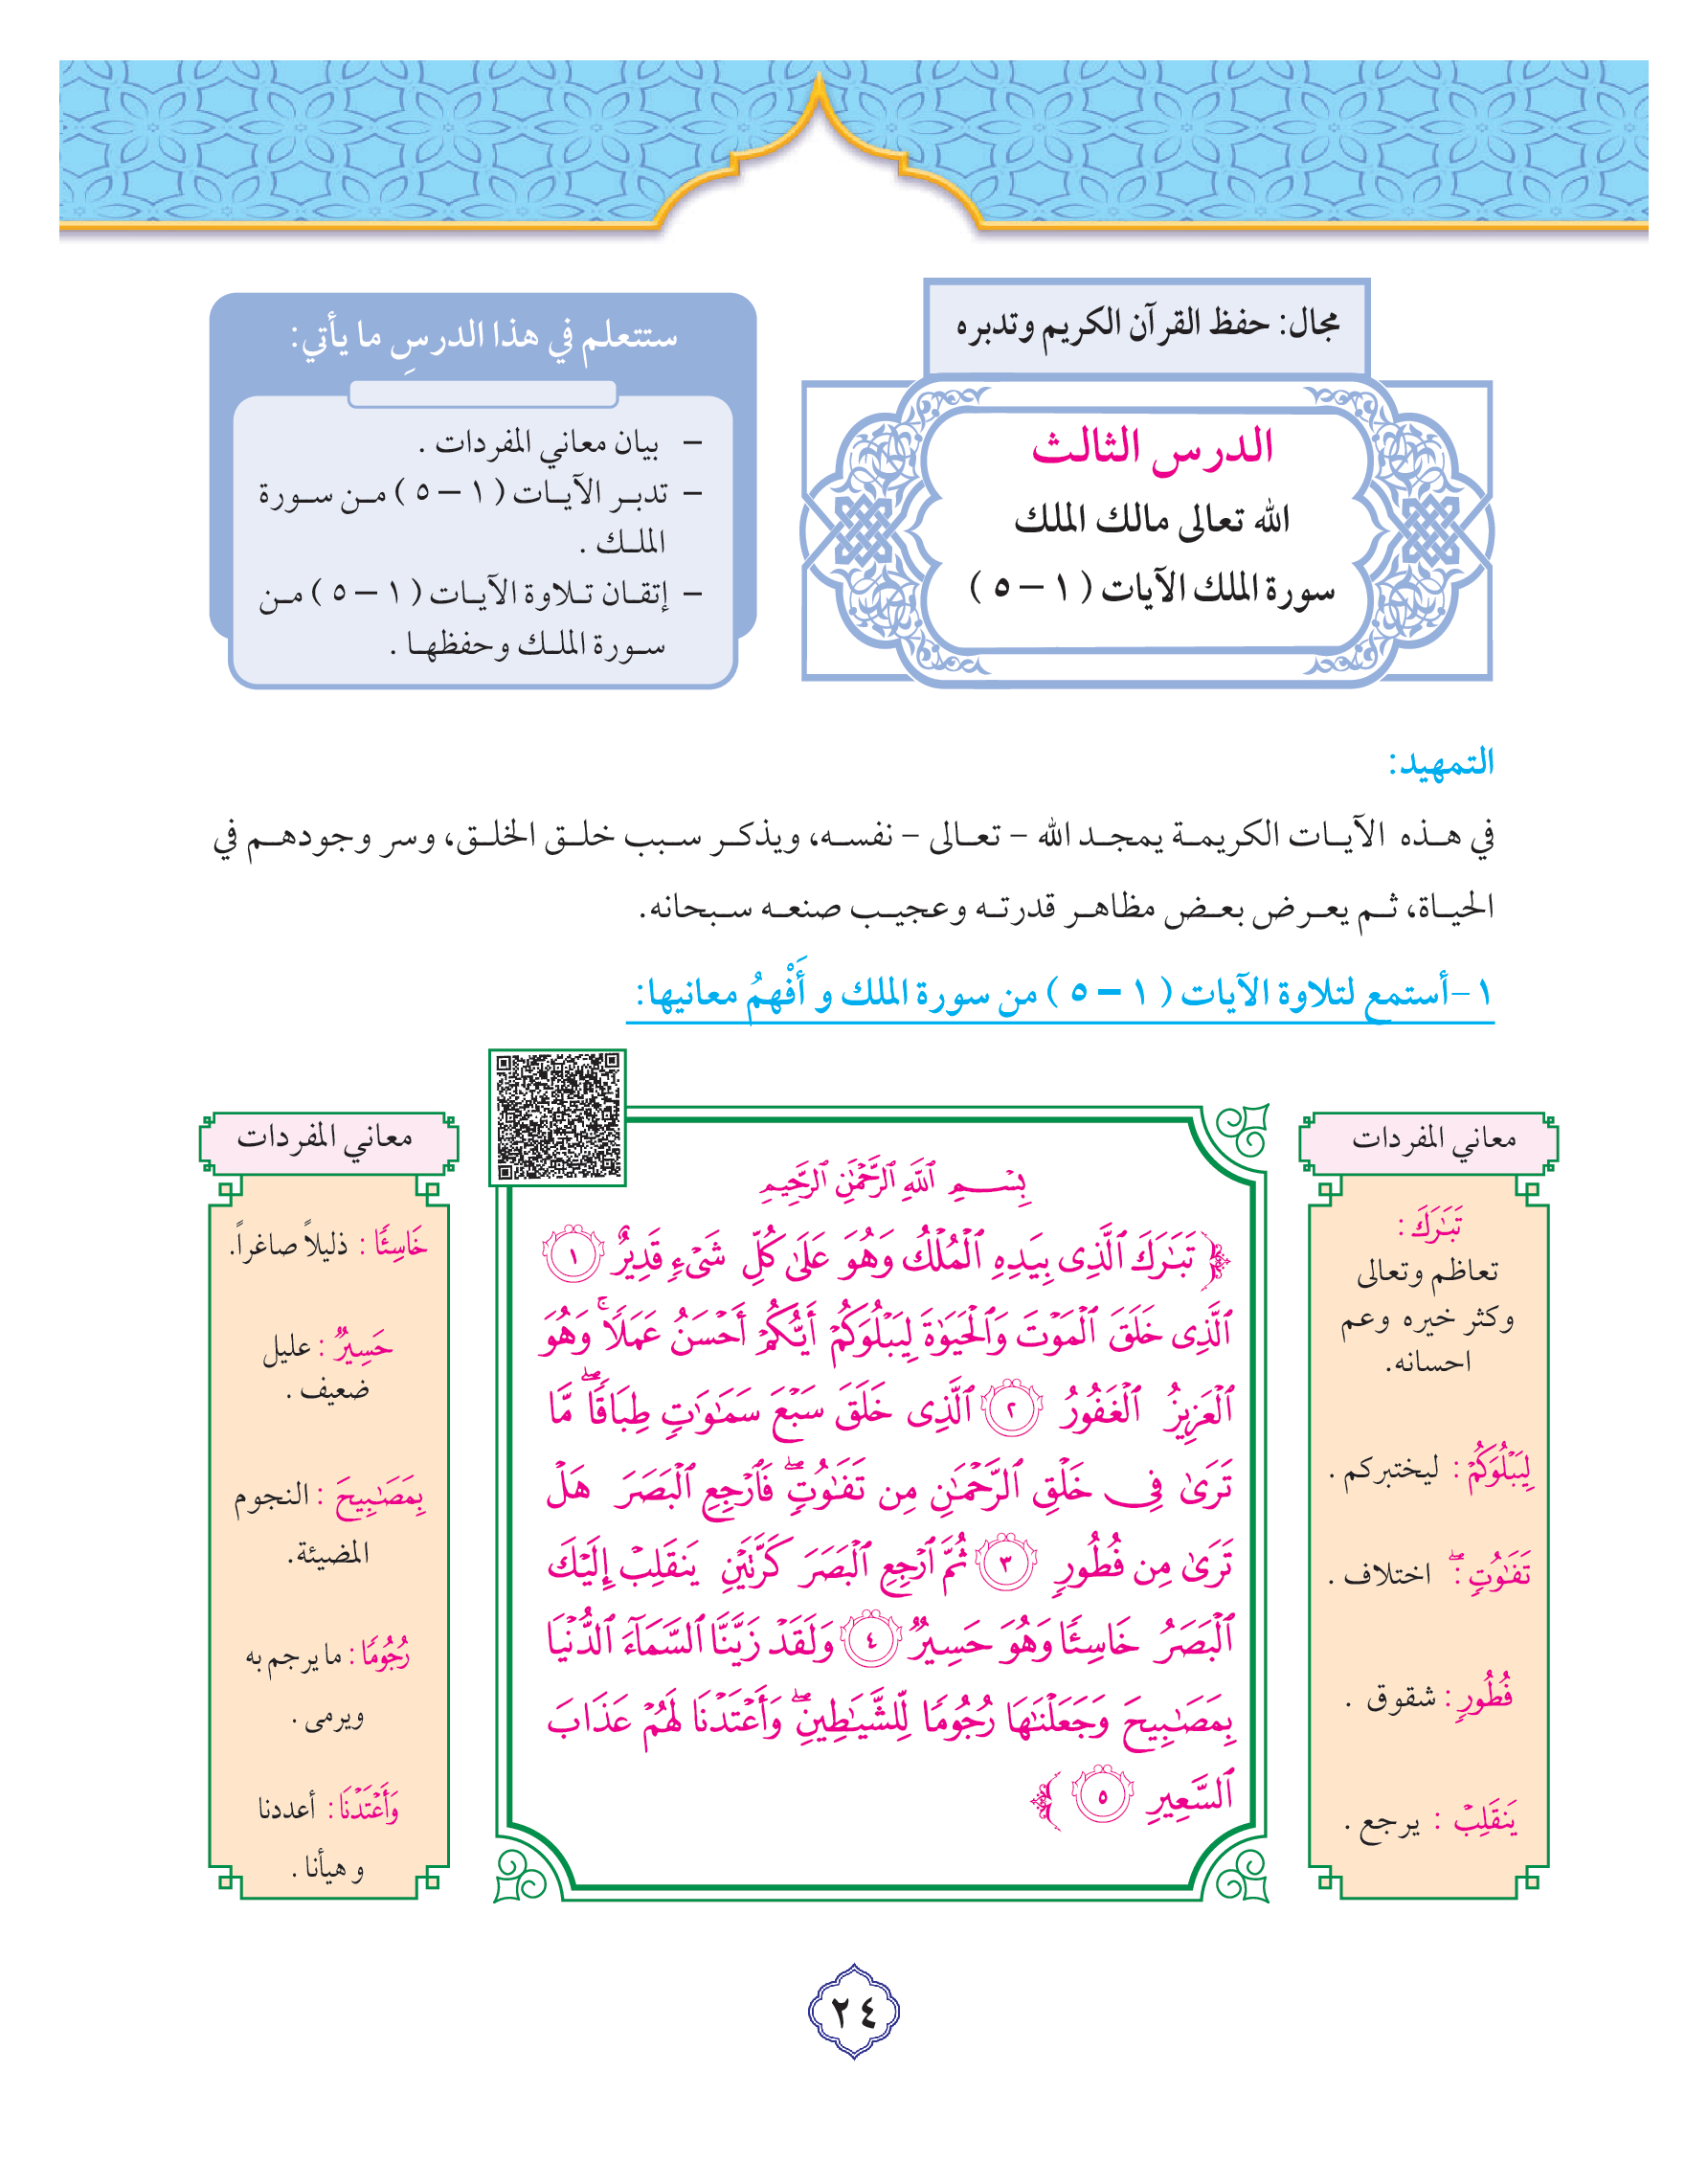 مجال: حفظ القرآن الكريم وتدبره
الدرس الثالث
الله تعالى مالك الملك
سورة الملك الآيات ( ١ – ٥ )
ستتعلم في هذا الدرسِ ما يأتي:
– بيان معاني المفردات .
– تدبر الآيات ( ١ – ٥ ) من سورة
الملك .
– إتقان تلاوة الآيات ( ١ – ٥ ) من
سورة الملك وحفظها .
التمهيد:
في هذه الآيات الكريمة يمجد الله – تعالى – نفسه، ويذكر سبب خلق الخلق، وسر وجودهم في
الحياة، ثم يعرض بعض مظاهر قدرته وعجيب صنعه سبحانه.
١-أستمع لتلاوة الآيات ( ١ – ٥ ) من سورة الملك و أَفْهمُ معانيها:
معاني المفردات
تَبَٰرَكَ :
تعاظم وتعالى
وكثر خيره وعم
احسانه.
لِيَبۡلُوَكُمۡ : ليختبركم .
تَفَٰوُتٖۖ : اختلاف .
فُطُورٖ : شقوق .
يَنقَلِبۡ : يرجع .
بِسۡمِ ٱللَّهِ ٱلرَّحۡمَٰنِ ٱلرَّحِيمِ
﴿ تَبَٰرَكَ ٱلَّذِي بِيَدِهِ ٱلۡمُلۡكُ وَهُوَ عَلَىٰ كُلِّ شَيۡءٖ قَدِيرٌ ١
ٱلَّذِي خَلَقَ ٱلۡمَوۡتَ وَٱلۡحَيَوٰةَ لِيَبۡلُوَكُمۡ أَيُّكُمۡ أَحۡسَنُ عَمَلٗاۚ وَهُوَ
ٱلۡعَزِيزُ ٱلۡغَفُورُ ٢ ٱلَّذِي خَلَقَ سَبۡعَ سَمَٰوَٰتٖ طِبَاقٗاۖ مَّا
تَرَىٰ فِي خَلۡقِ ٱلرَّحۡمَٰنِ مِن تَفَٰوُتٖۖ فَٱرۡجِعِ ٱلۡبَصَرَ هَلۡ
تَرَىٰ مِن فُطُورٖ ٣ ثُمَّ ٱرۡجِعِ ٱلۡبَصَرَ كَرَّتَيۡنِ يَنقَلِبۡ إِلَيۡكَ
ٱلۡبَصَرُ خَاسِئٗا وَهُوَ حَسِيرٞ ٤ وَلَقَدۡ زَيَّنَّا ٱلسَّمَآءَ ٱلدُّنۡيَا
بِمَصَٰبِيحَ وَجَعَلۡنَٰهَا رُجُومٗا لِّلشَّيَٰطِينِۖ وَأَعۡتَدۡنَا لَهُمۡ عَذَابَ
ٱلسَّعِيرِ ٥ ﴾
معاني المفردات
خَاسِئٗا : ذليلاً صاغراً.
حَسِيرٞ : عليل
ضعيف .
بِمَصَٰبِيحَ : النجوم
المضيئة.
رُجُومٗا : ما يرجم به
ويرمى .
وَأَعۡتَدۡنَا : أعددنا
و هيأنا .
٢٤